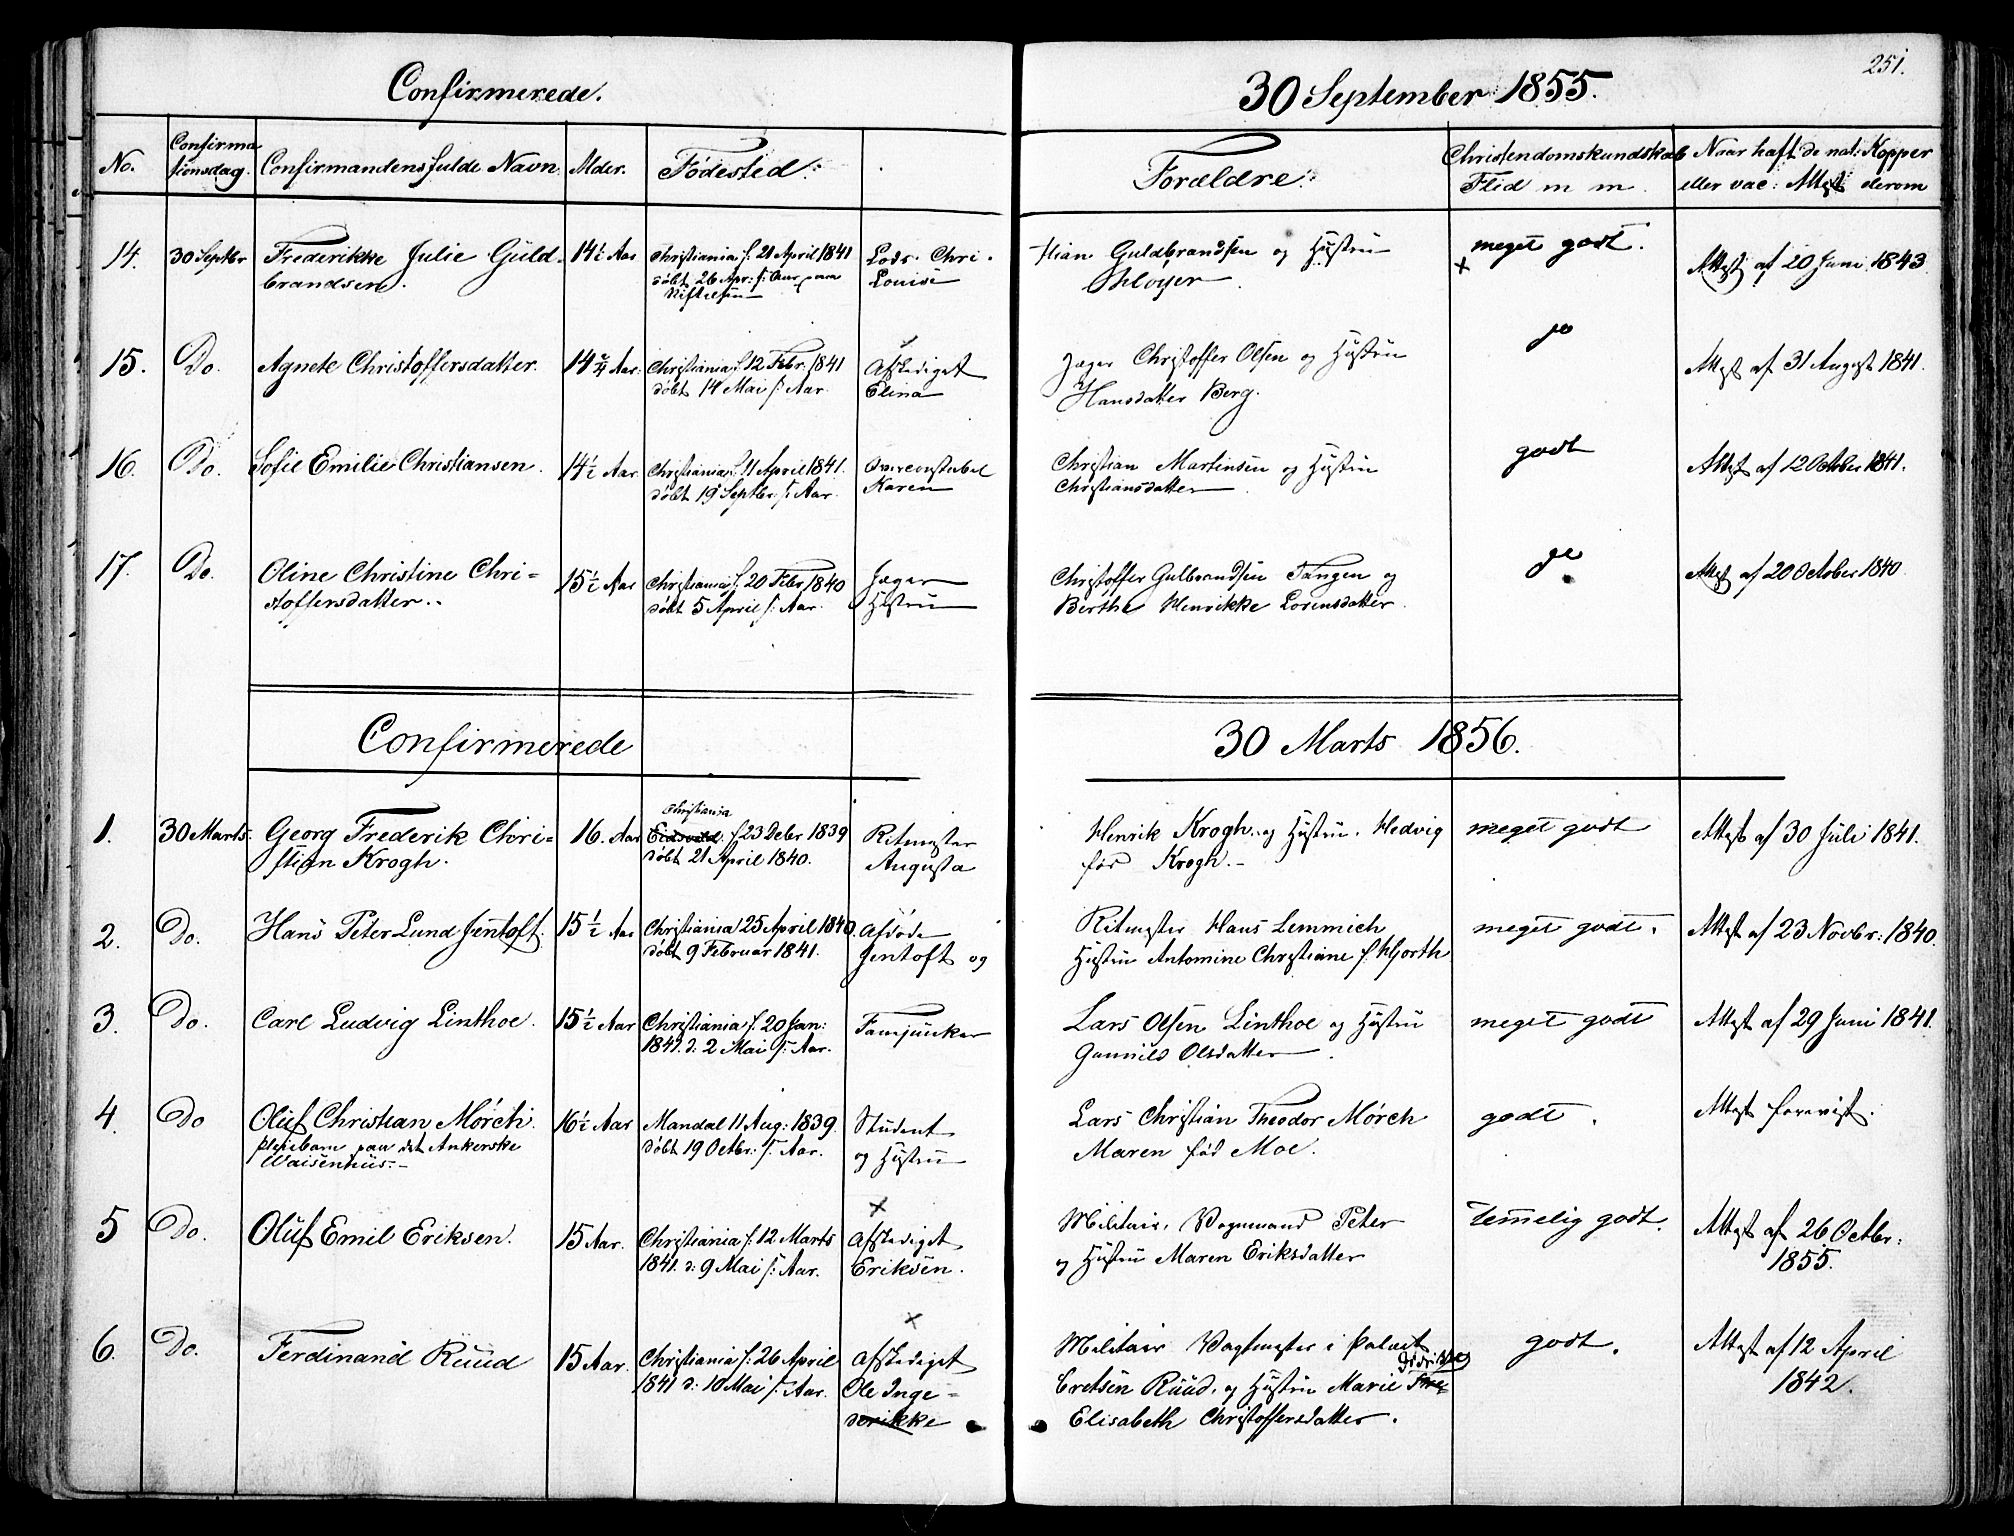 Confirmerede. 30 September 1855. 251.
No. Confirmationsdag. Confirmandens fulde Navn. Alder. Fødested. Forældre. Christendomskundskab Flid m m. Naar haft de nat: Kopper eller vac: Attest derom
14. 30 Septbr Frederikke Julie Guld- 14½ Aar Christiania f. 21 April 1841 Lods. Chri- stian Guldbrandsen og Hustru meget godt. Attest af 20 Juni 1843
brandsen. døbt 26 Apr: f: Aar paa Louise Høyer x
15. Do. Agnete Christoffersdatter. 14¾ Aar. Christiania f. 12 Febr. 1841 Afskediget Jæger Christoffer Olsen og Hustru Attest af 31 August 1841.
døbt 14 Mai f: Aar. Elina Hansdatter Berg.
16. Do. Sofie Emilie Christiansen. 14½ Aar. Christiania f. 11 April 1841. Overconstabel Christian Martinsen og Hustru godt Attest af 12 October 1841.
døbt 19 Septbr. f: Aar. Karen Christiansdatter.
17. Do. Oline Christine Chri- 15½ Aar Christiania f. 20 Febr 1840 Jæger Christoffer Gulbrandsen Tangen og Attest af 20 October 1840
stoffersdatter. døbt 5 April f: Aar. Hustru Berthe Henrikke Lorensdatter.
Confirmerede 30 Marts 1856.
1. 30 Marts. Georg Frederik Chri- 16. Aar Christiania Eidsvold f 23 Debr 1839 Ritmester Henrik Krogh og Hustru. Hedvig meget godt Attest af 30 Juli 1841.
stian Krogh. døbt 21 April 1840. Augusta fød Krogh.
2. Do. Hans Peter Lund Jentoft. 15½ Aar Christiania 25 April 1840. Afdøde Ritmester Hans Lemmich meget godt. Attest af 23 Novbr: 1840.
døbt 9 Februar 1841. Jentoft og Hustru Antomine Christiane f. Hjorth
3. Do. Carl Ludvig Linthoe. 15½ Aar Christiania f. 20 Jan: Fanejunker Lars Olsen Linthoe og Hustru meget godt Attest af 29 Juni 1841.
1841. d: 2 Mai f: Aar. Gunnild Olsdatter.
4. Do Oluf Christian Mörch. 16½ Aar Mandal 11 Aug: 1839. Student Lars Christian Theodor Mörch godt. Attest forevist.
Pleiebarn paa det Ankerske døbt 19 Octbr. f. Aar. og Hustru Maren fød Moe.
Waisenhus.
5 Do. Oluf Emil Eriksen. 15 Aar. Christiania f: 12 Marts x Afskediget Militair. Vognmand Peter temmelig godt. Attest af 26 Octbr:
1841. d: 9 Mai f: Aar. Eriksen. og Hustru Maren Eriksdatter 1855.
6. Do. Ferdinand Ruud 15 Aar. Christiania f: 26 April x Afskediget Militair Vagtmester i Palæet godt. Attest af 12 April
1841 d: 10 Mai f: Aar. Ole Inge- bretsen Ruud. og Hustru Marie Fre- Didrikke 1842.
derikke Elisabeth Christoffersdatter.